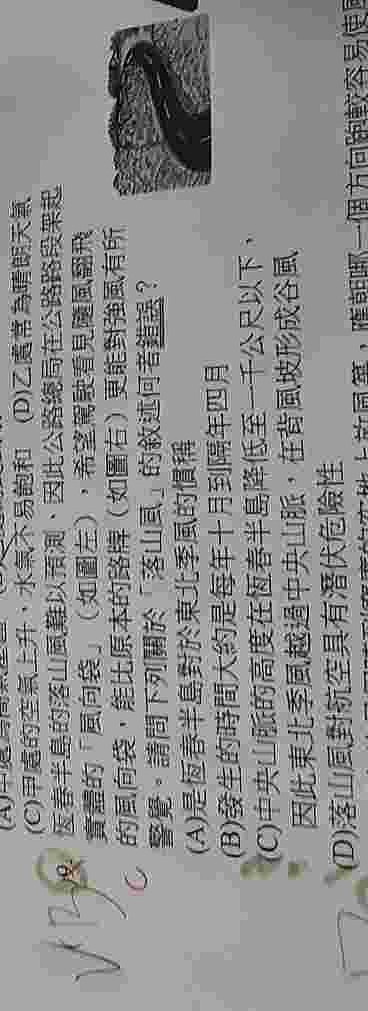 (C)甲處的空氣上升，水氣不易飽和　(D)乙處常為晴朗天氣
恆春半島的落山風難以預測，因此公路總局在公路路段架起
實體的「風向袋」（如圖左），希望駕駛看見隨風翻飛
的風向袋，能比原本的路牌（如圖右）更能對強風有所
警覺。請問下列關於「落山風」的敘述何者錯誤？
(A)是恆春半島對於東北季風的慣稱
(B)發生的時間大約是每年十月到隔年四月
(C)中央山脈的高度在恆春半島降低至一千公尺以下，
因此東北季風越過中央山脈，在背風坡形成谷風
(D)落山風對航空具有潛伏危險性
C